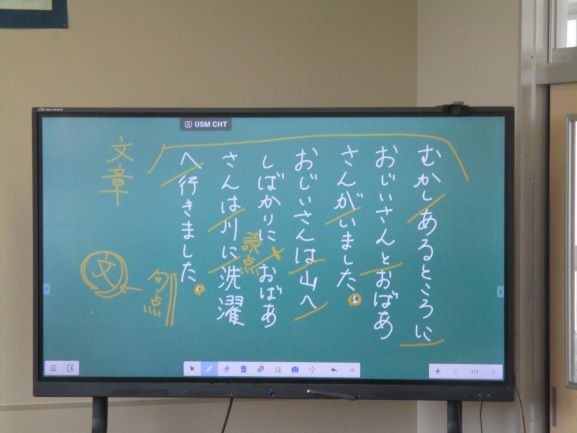 USM CHT
むかしあるところに
おじいさんとおばあ
さんがいました。
おじいさんは山へ
しばかりに、おばあ
さんは川に洗濯
へ行きました。
読点
文章
文
句点
1/1